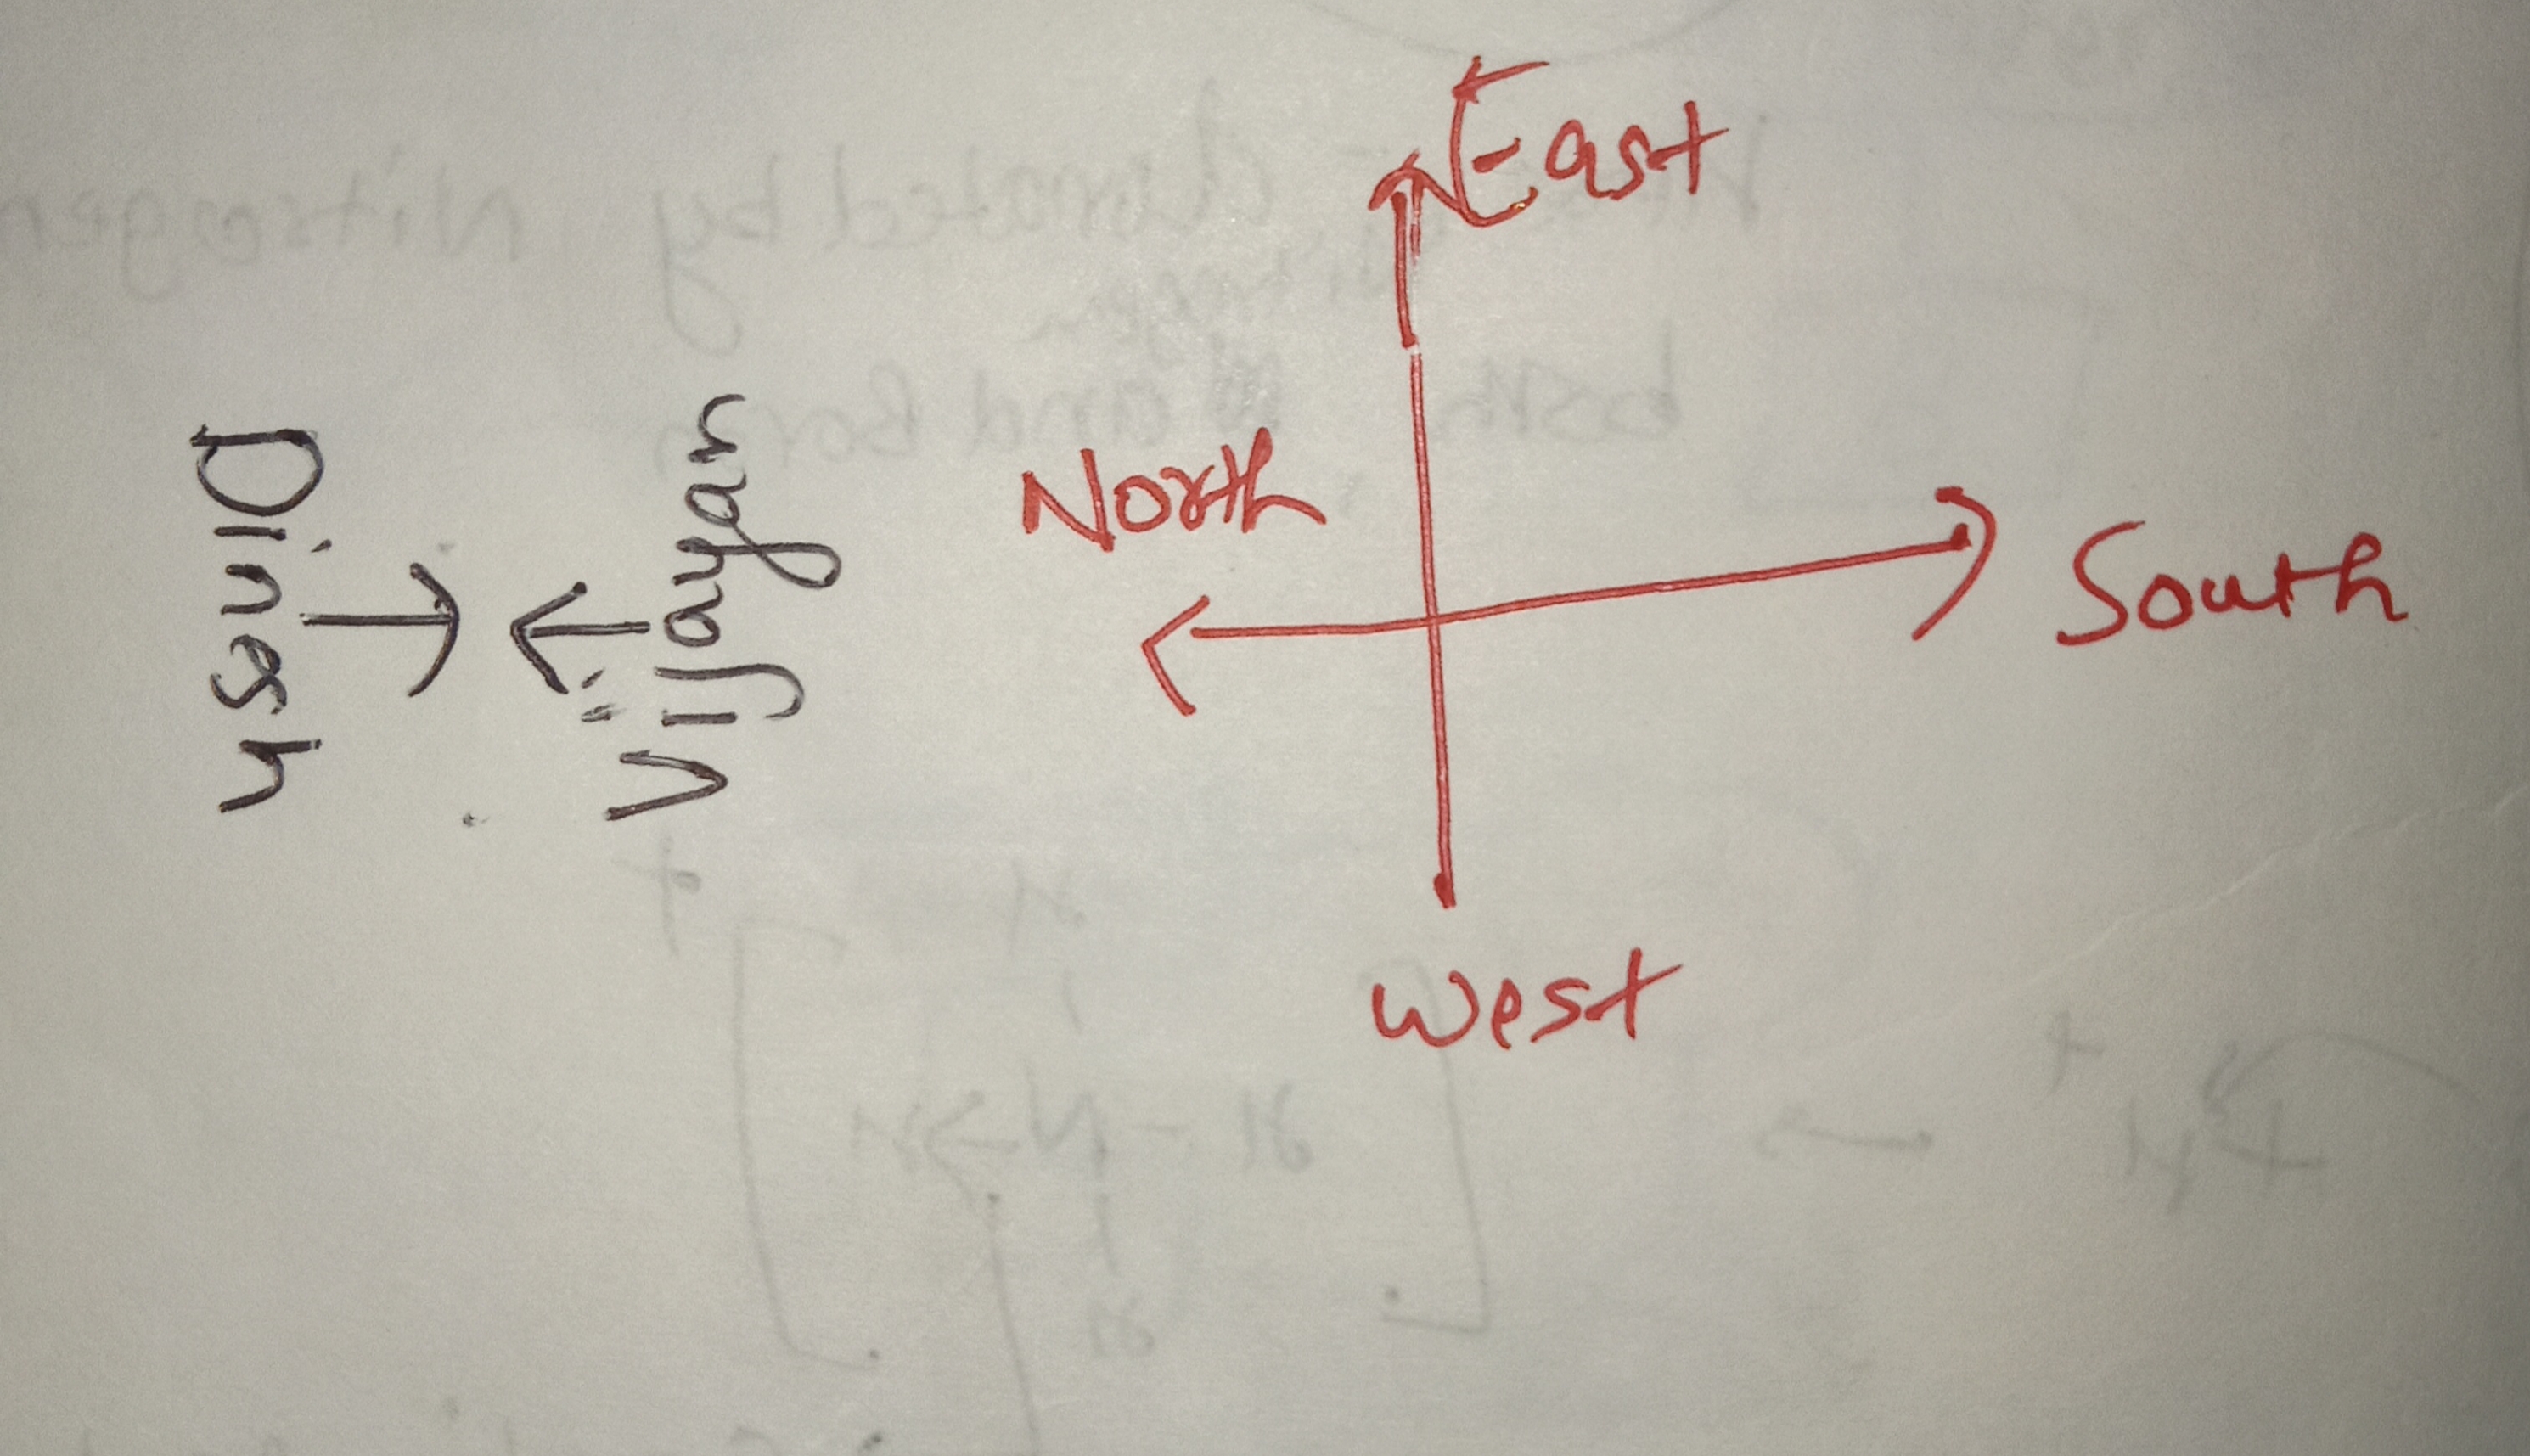 East
North
South
West
Dinesh
Vijayan